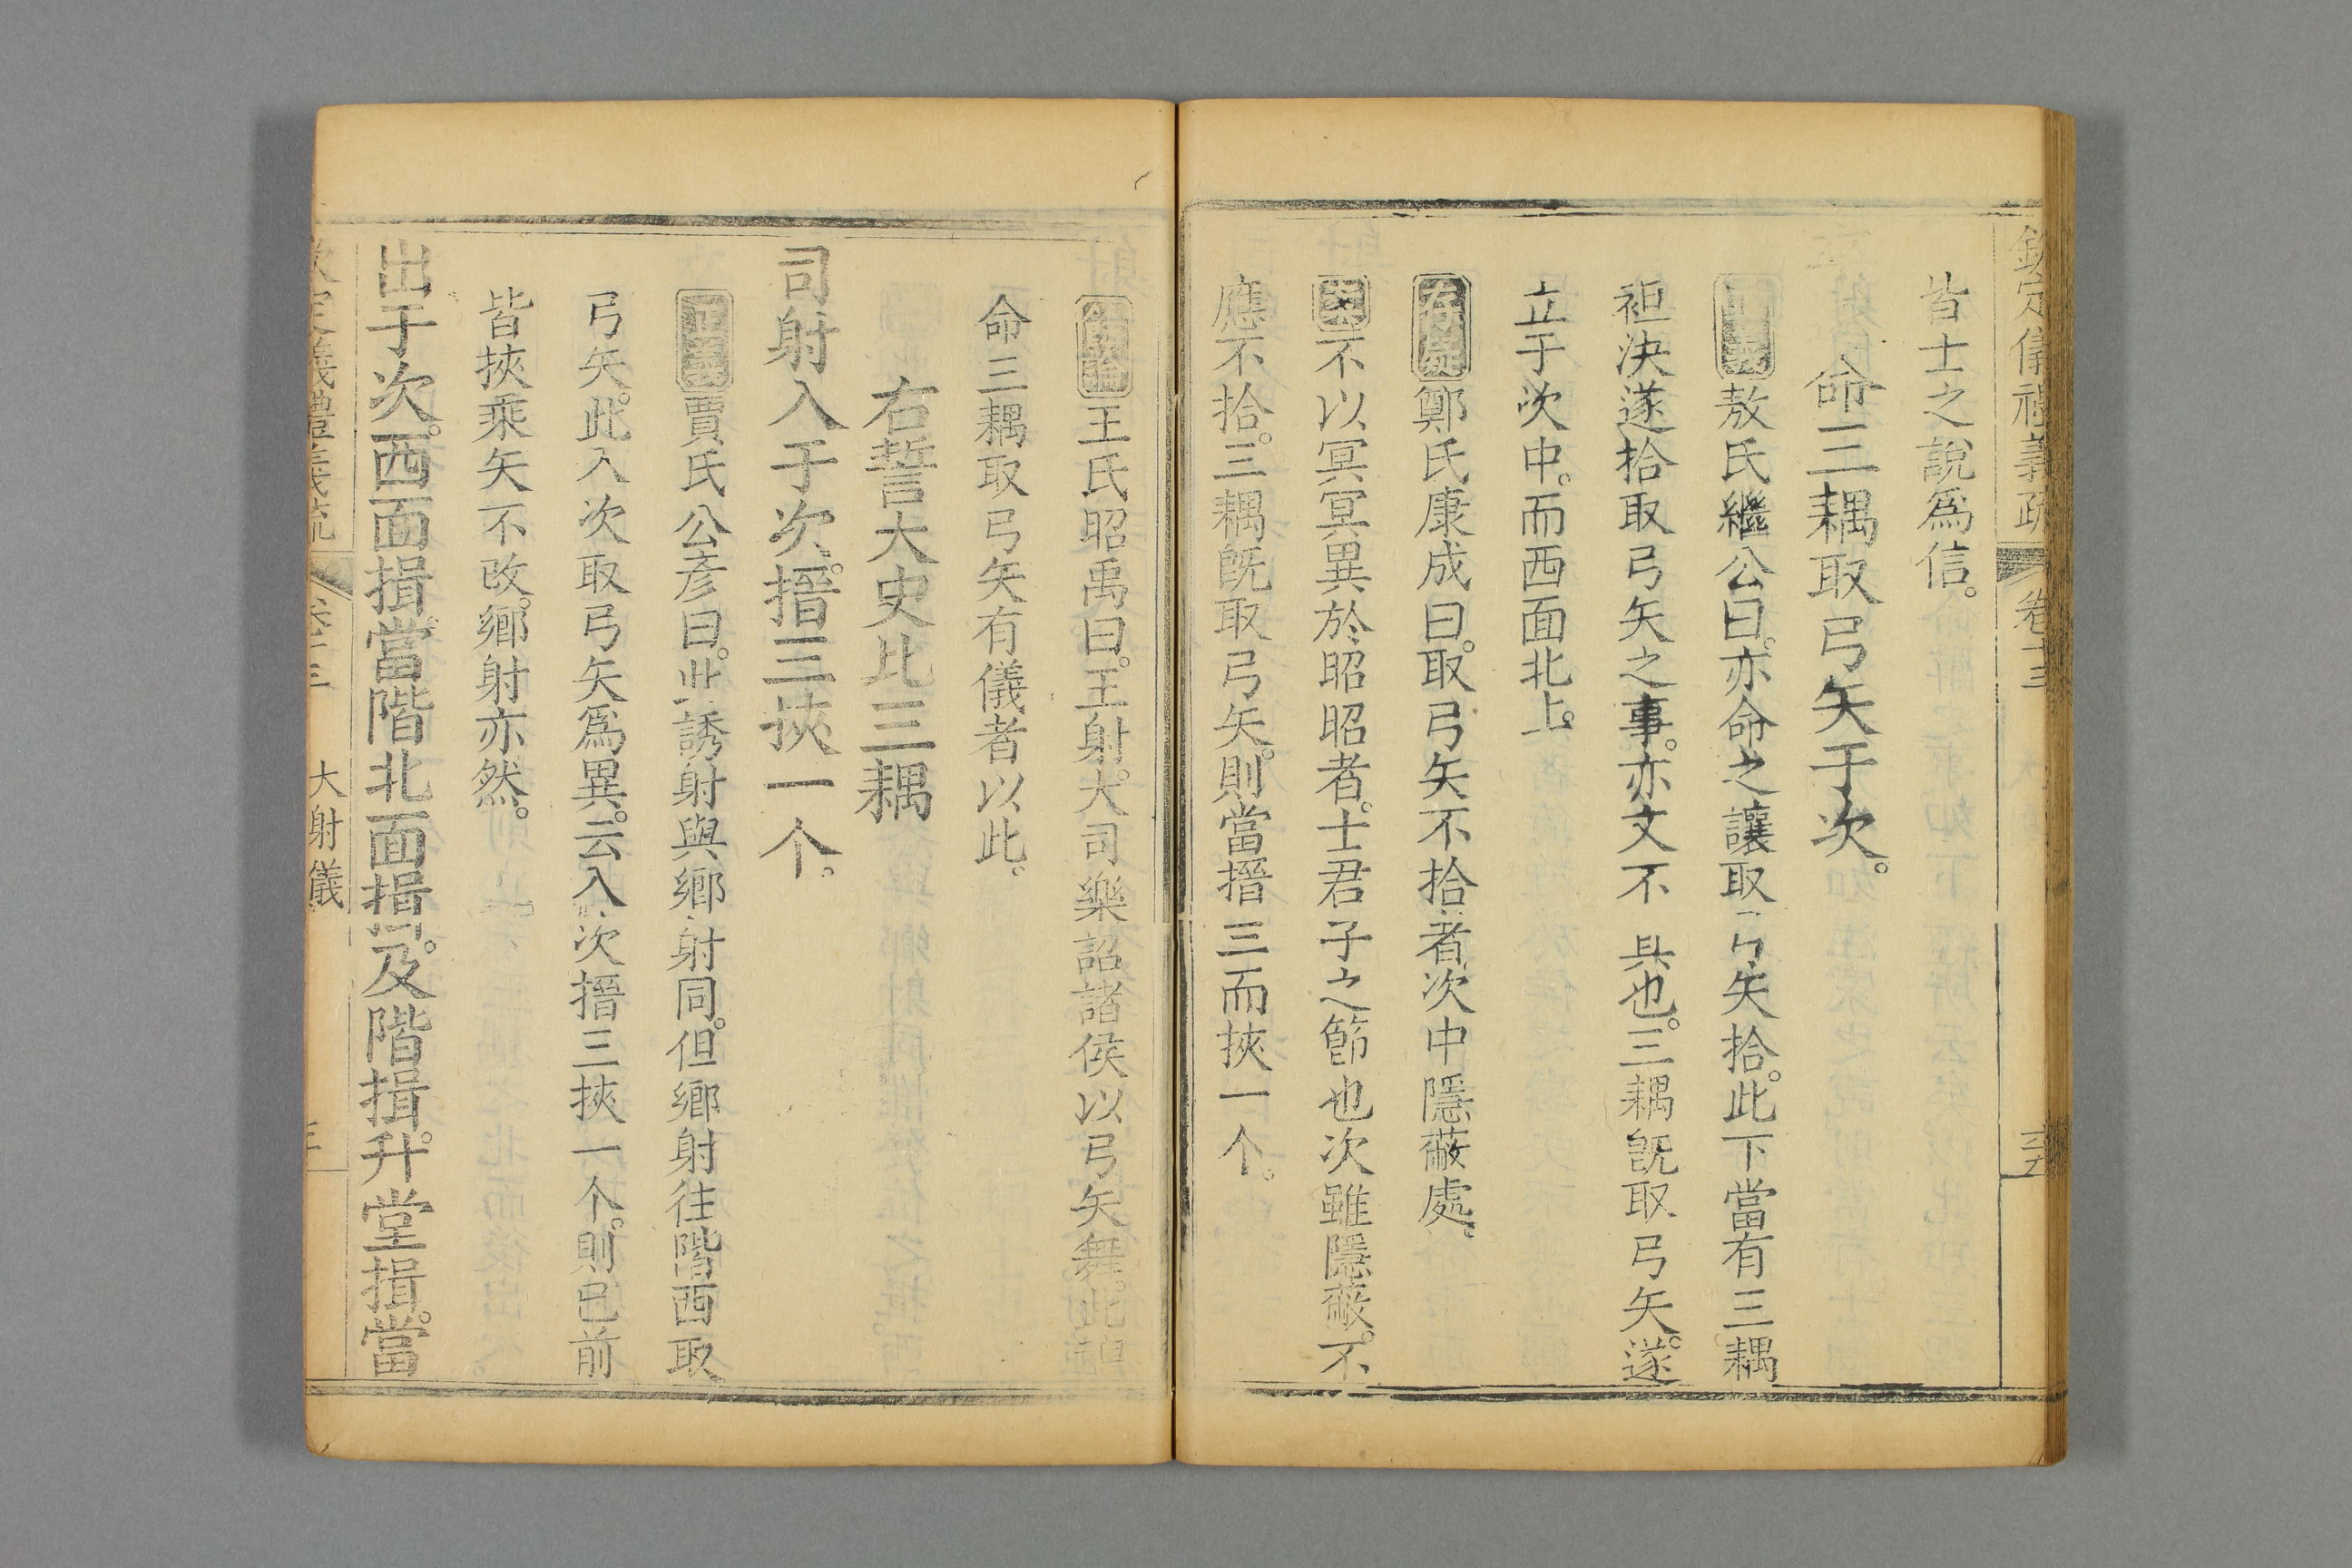 欽定儀禮義疏 卷十三
皆士之說爲信。
命三耦取弓矢于次。
正義敖氏繼公曰。亦命之讓取弓矢拾。此下當有三耦
袒決遂拾取弓矢之事。亦文不具也。三耦旣取弓矢。遂
立于次中。而西面北上。
存疑鄭氏康成曰。取弓矢不拾者。次中隱蔽處。
案不以冥冥異於昭昭者。士君子之節也次雖隱蔽。不
應不拾。三耦旣取弓矢。則當搢三而挾一个。
餘論王氏昭禹曰。王射。大司樂詔諸侯以弓矢舞。此
命三耦取弓矢有儀者以此。
右誓大史比三耦
司射入于次。搢三挾一个。
正義賈氏公彥曰。此誘射與鄉射同。但鄉射往階西取
弓矢。此入次取弓矢爲異。云入次搢三挾一个。則已前
皆挾乘矢不改。鄉射亦然。
出于次。西面揖。當階北面揖。及階揖。升堂揖。當
欽定儀禮義疏 卷十三 大射儀